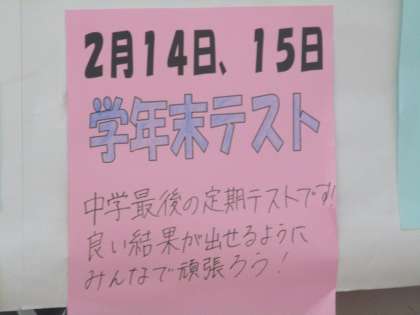 2月14日、15日
学年末テスト
中学最後の定期テストです!
良い結果が出せるように
みんなで頑張ろう!